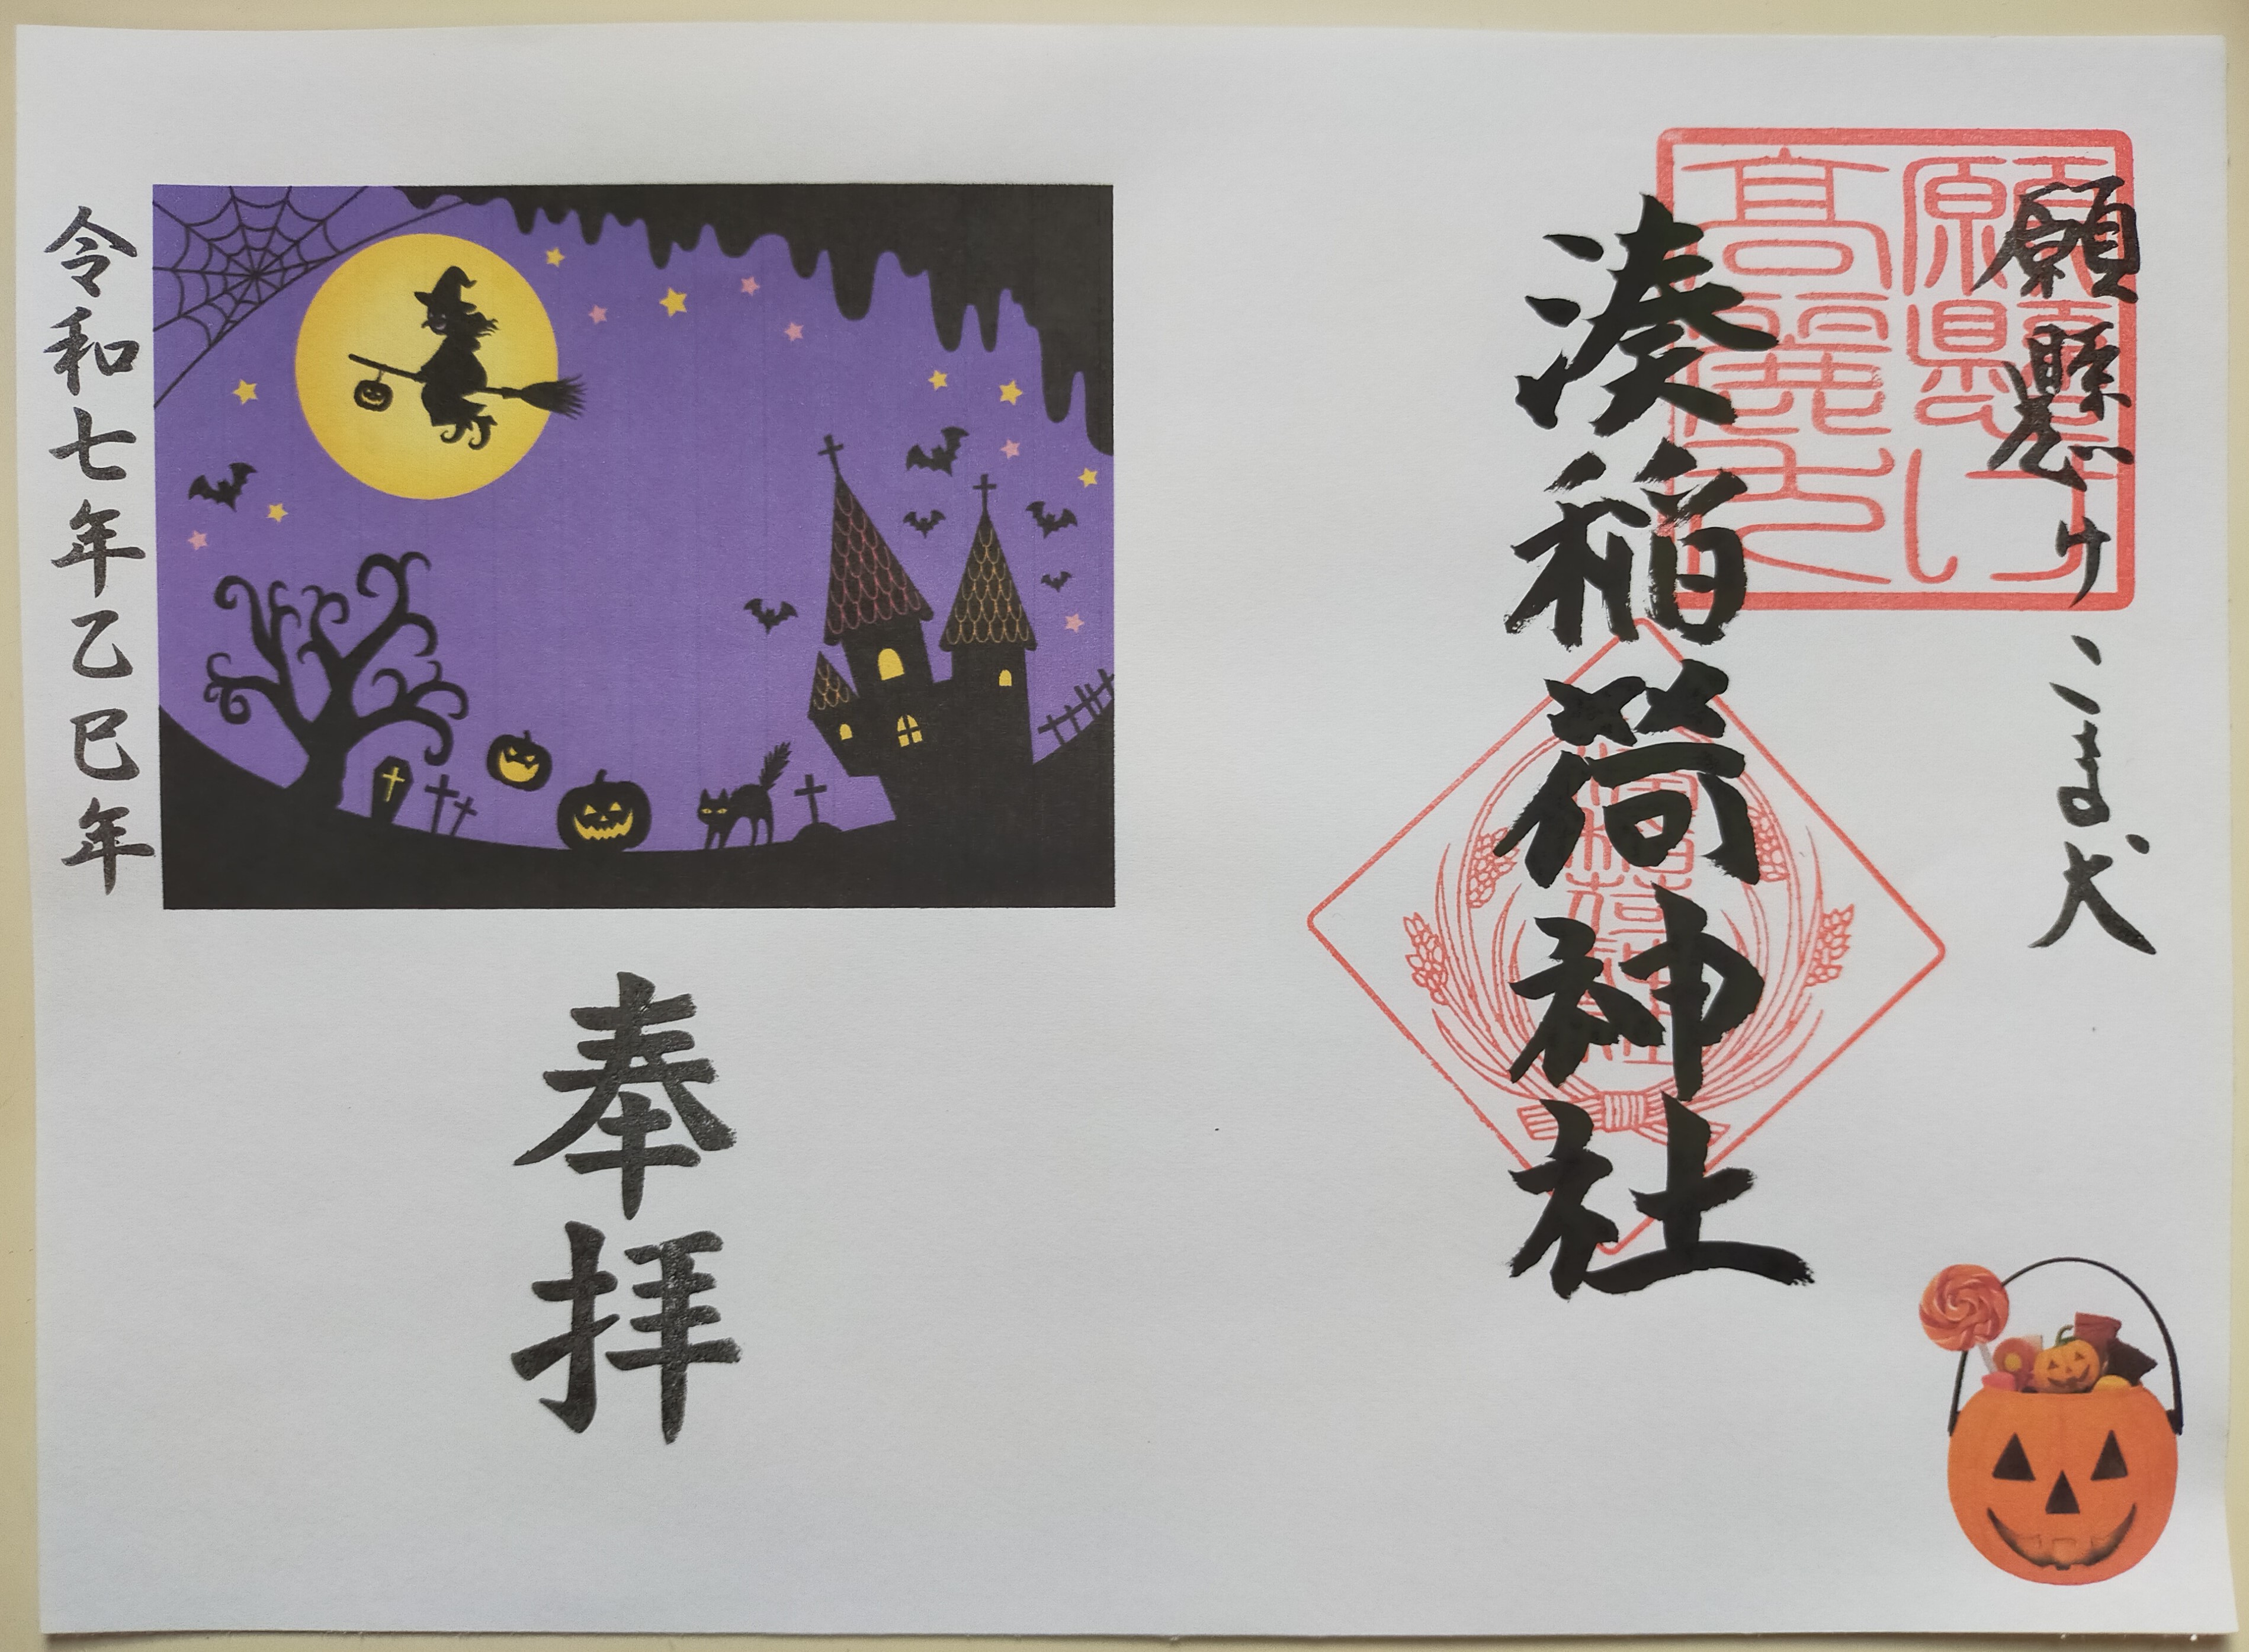 願懸けこま犬
願懸け高麗犬
湊稲荷神社
奉拝
令和七年乙巳年